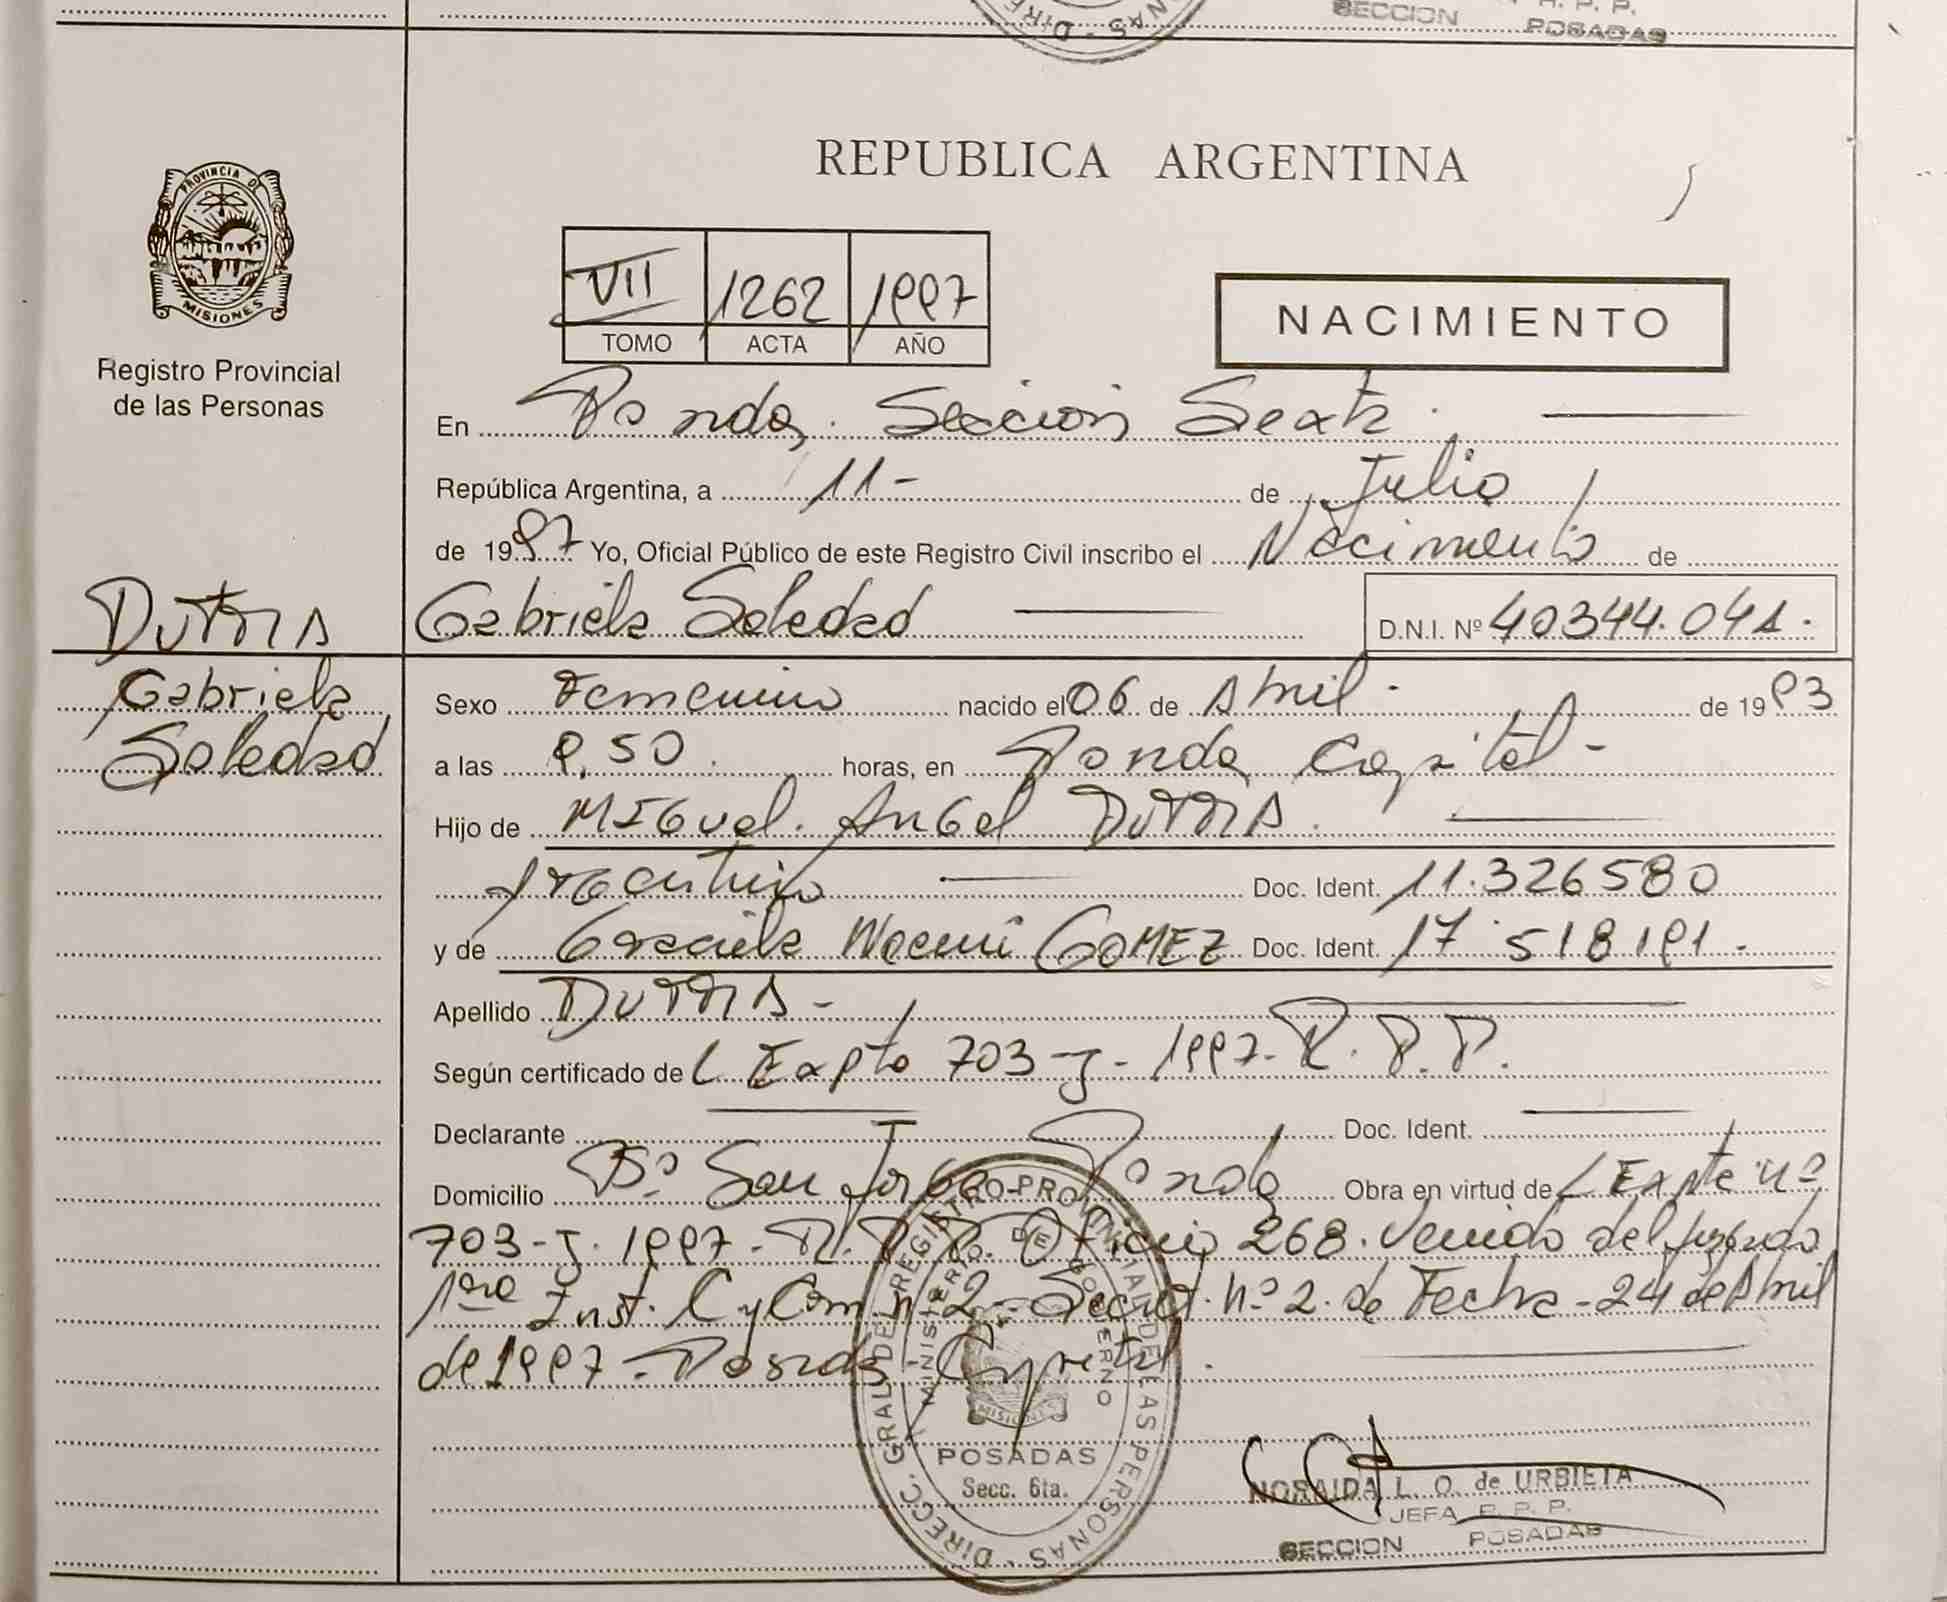 R. P. P.
SECCION POSADAS
REPUBLICA ARGENTINA
PROVINCIA DE MISIONES
Registro Provincial
de las Personas
VII 1262 1997
TOMO ACTA AÑO
NACIMIENTO
En Posadas, Sección Sexta.
República Argentina, a 11- de Julio
de 1997 Yo, Oficial Público de este Registro Civil inscribo el Nacimiento de
DUTRA Gabriela Soledad D.N.I. Nº 40344.041.
Gabriela
Soledad
Sexo Femenino nacido el 06 de Abril - de 1993
a las 9,50 horas, en Posadas Capital -
Hijo de MIGuel. AnGel DUTRA.
Argentino Doc. Ident. 11.326580
y de Graciela Noemi GOMEZ Doc. Ident. 17 518191.-
Apellido DUTRA -
Según certificado de Expte 703-J- 1997- R. P. P.
Declarante Doc. Ident.
Domicilio Bº San Jorge Posadas Obra en virtud de Expte nº
703-J. 1997 - R. P. P. Oficio 268. Venido del Juzgado
1ra Inst. C y Com nº 2 - Secret. nº 2. de Fecha - 24 de Abril
de 1997 - Posadas Capital.
DIRECC. GRAL. DEL REGISTRO PROVINCIAL DE LAS PERSONAS
MINISTERIO DE GOBIERNO
MISIONES
POSADAS
Secc. 6ta.
NORAIDA L. O. de URBIETA
JEFA R. P. P.
SECCION POSADAS